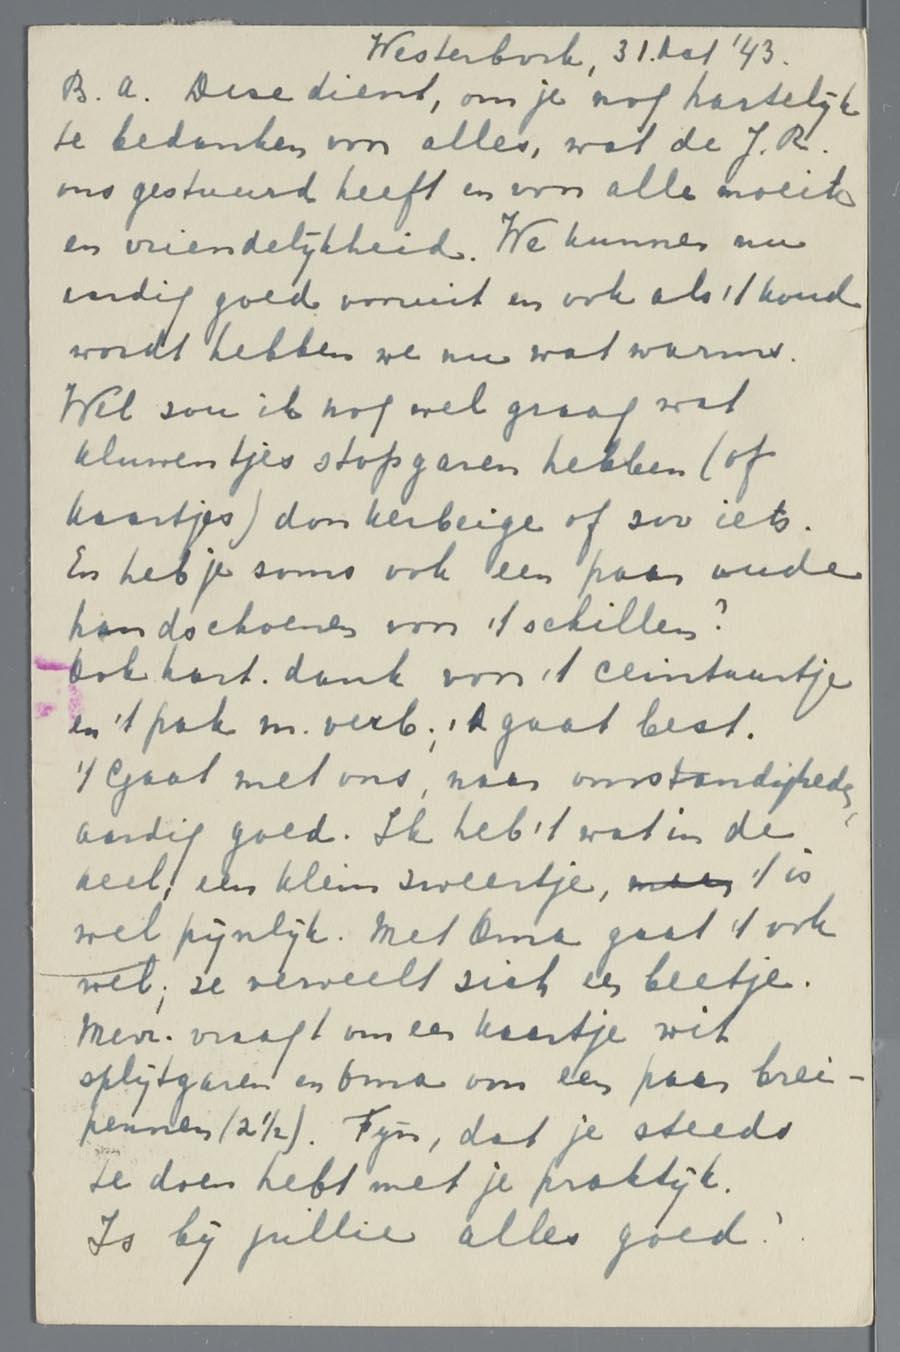 Westerbork, 31. Oct '43.
B. A. Deze dient, om je nog hartelijk
te bedanken voor alles, wat de J. R.
ons gestuurd heeft en voor alle moeite
en vriendelijkheid. We kunnen nu
aardig goed vooruit en ook als 't koud
wordt hebben we nu wat warms.
Wel zou ik nog wel graag wat
kluwentjes stopgaren hebben (of
kaartjes) donkerbeige of zoo iets.
En heb je soms ook een paar oude
handschoenen voor 't schillen?
Ook hart. dank voor 't ceintuurtje
en 't pak m. verb.; 't gaat best.
't Gaat met ons, naar omstandigheden,
aardig goed. Ik heb 't wat in de
keel, een klein zweertje, maar 't is
wel pijnlijk. Met Oma gaat 't ook
wel; ze verveelt zich een beetje.
Mevr. vraagt om een kaartje wit
splijtgaren en Oma om een paar brei-
pennen (2 1/2). Fijn, dat je steeds
te doen hebt met je praktijk.
Is bij jullie alles goed?